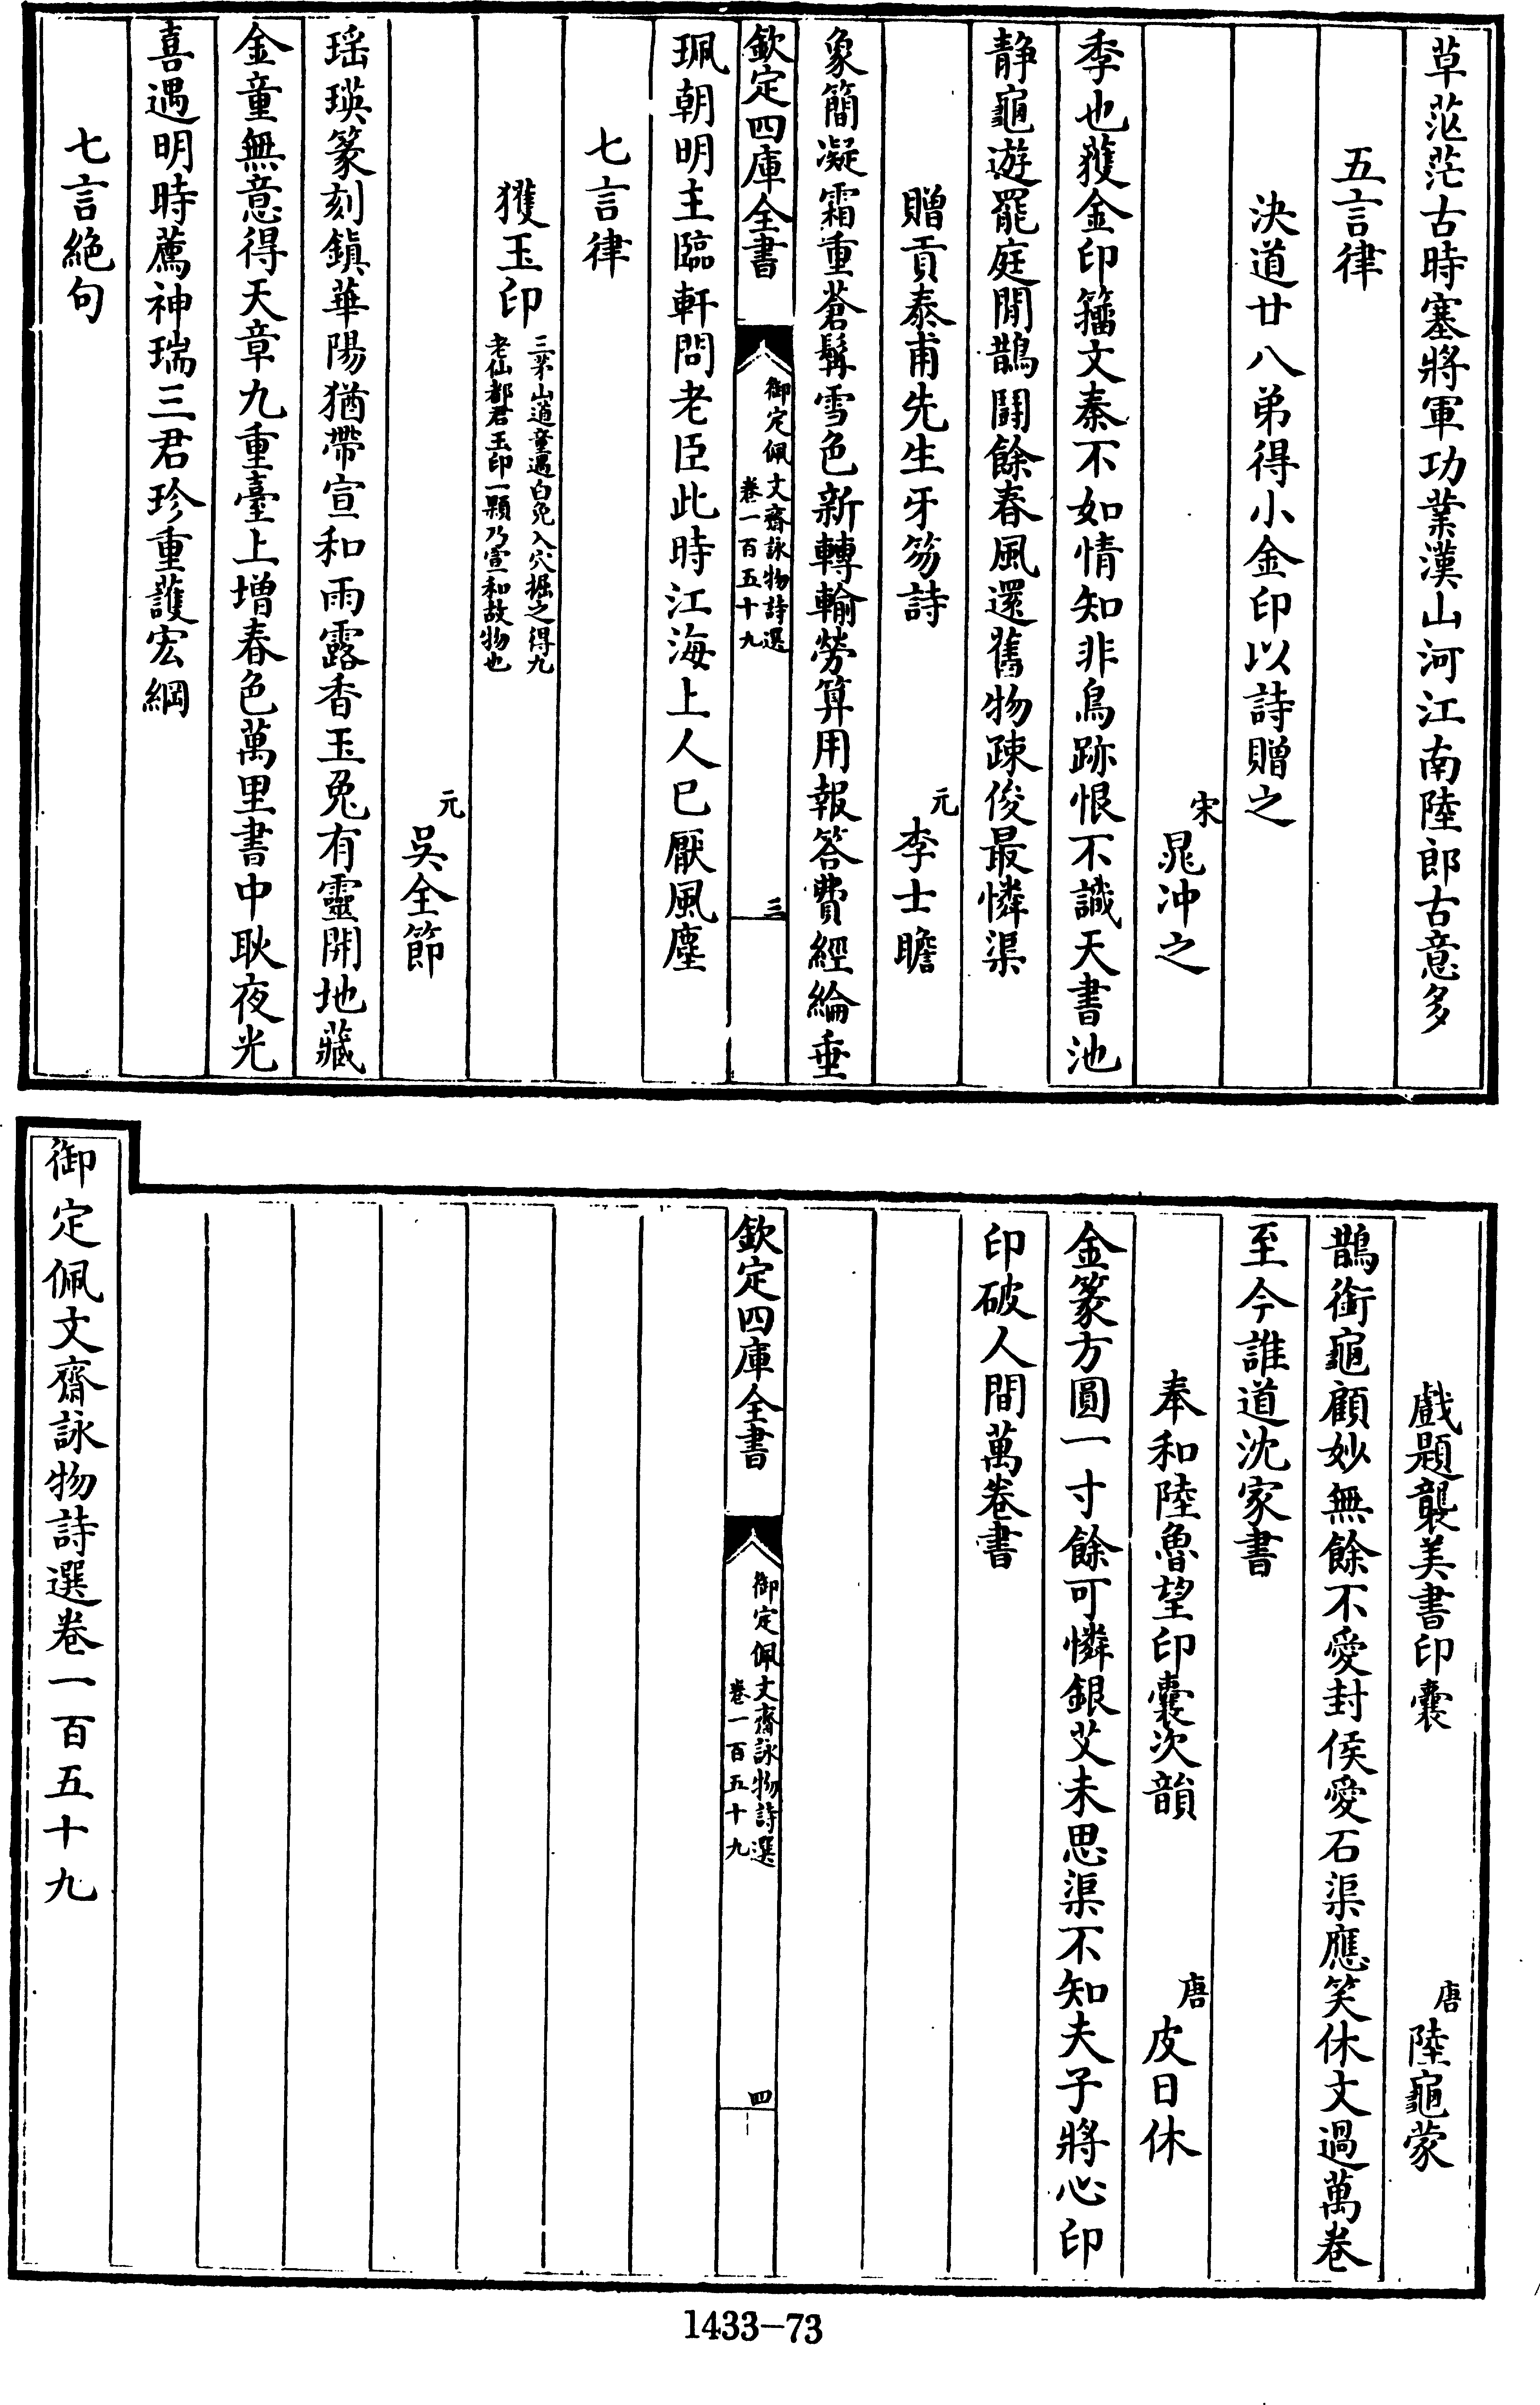 草茫茫古時塞將軍功業漢山河江南陸郎古意多
五言律
決道廿八弟得小金印以詩贈之
宋晁沖之
季也獲金印籀文秦不如情知非鳥跡恨不識天書池
静龜遊罷庭閒鵲鬪餘春風還舊物疎俊最憐渠
贈貢泰甫先生牙笏詩
元李士瞻
象簡凝霜重蒼髯雪色新轉輸勞算用報答費經綸垂
欽定四庫全書
御定佩文齋詠物詩選
卷一百五十九
三
珮朝明主臨軒問老臣此時江海上人已厭風塵
七言律
獲玉印
三茅山道童遇白兔入穴掘之得九
老仙都君玉印一顆乃宣和故物也
元吳全節
瑶瑛篆刻鎮華陽猶帶宣和雨露香玉兔有靈開地藏
金童無意得天章九重臺上增春色萬里書中耿夜光
喜遇明時薦神瑞三君珍重護宏綱
七言絕句
戲題襲美書印囊
唐陸龜蒙
鵲銜龜顧妙無餘不愛封侯愛石渠應笑休文過萬卷
至今誰道沈家書
奉和陸魯望印囊次韻
唐皮日休
金篆方圓一寸餘可憐銀艾未思渠不知夫子將心印
印破人間萬卷書
欽定四庫全書
御定佩文齋詠物詩選
卷一百五十九
四
御定佩文齋詠物詩選卷一百五十九
1433-73